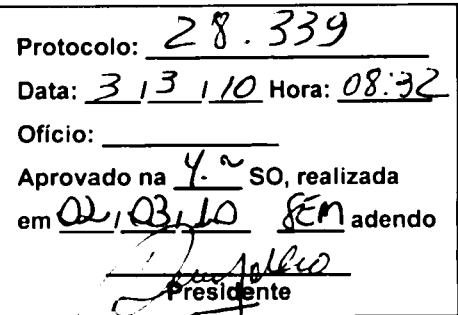 Protocolo: 28.339
Data: 3 / 3 / 10 Hora: 08:32
Ofício:
Aprovado na 4.ª SO, realizada
em 02 / 03 / 10 SEM adendo
Presidente